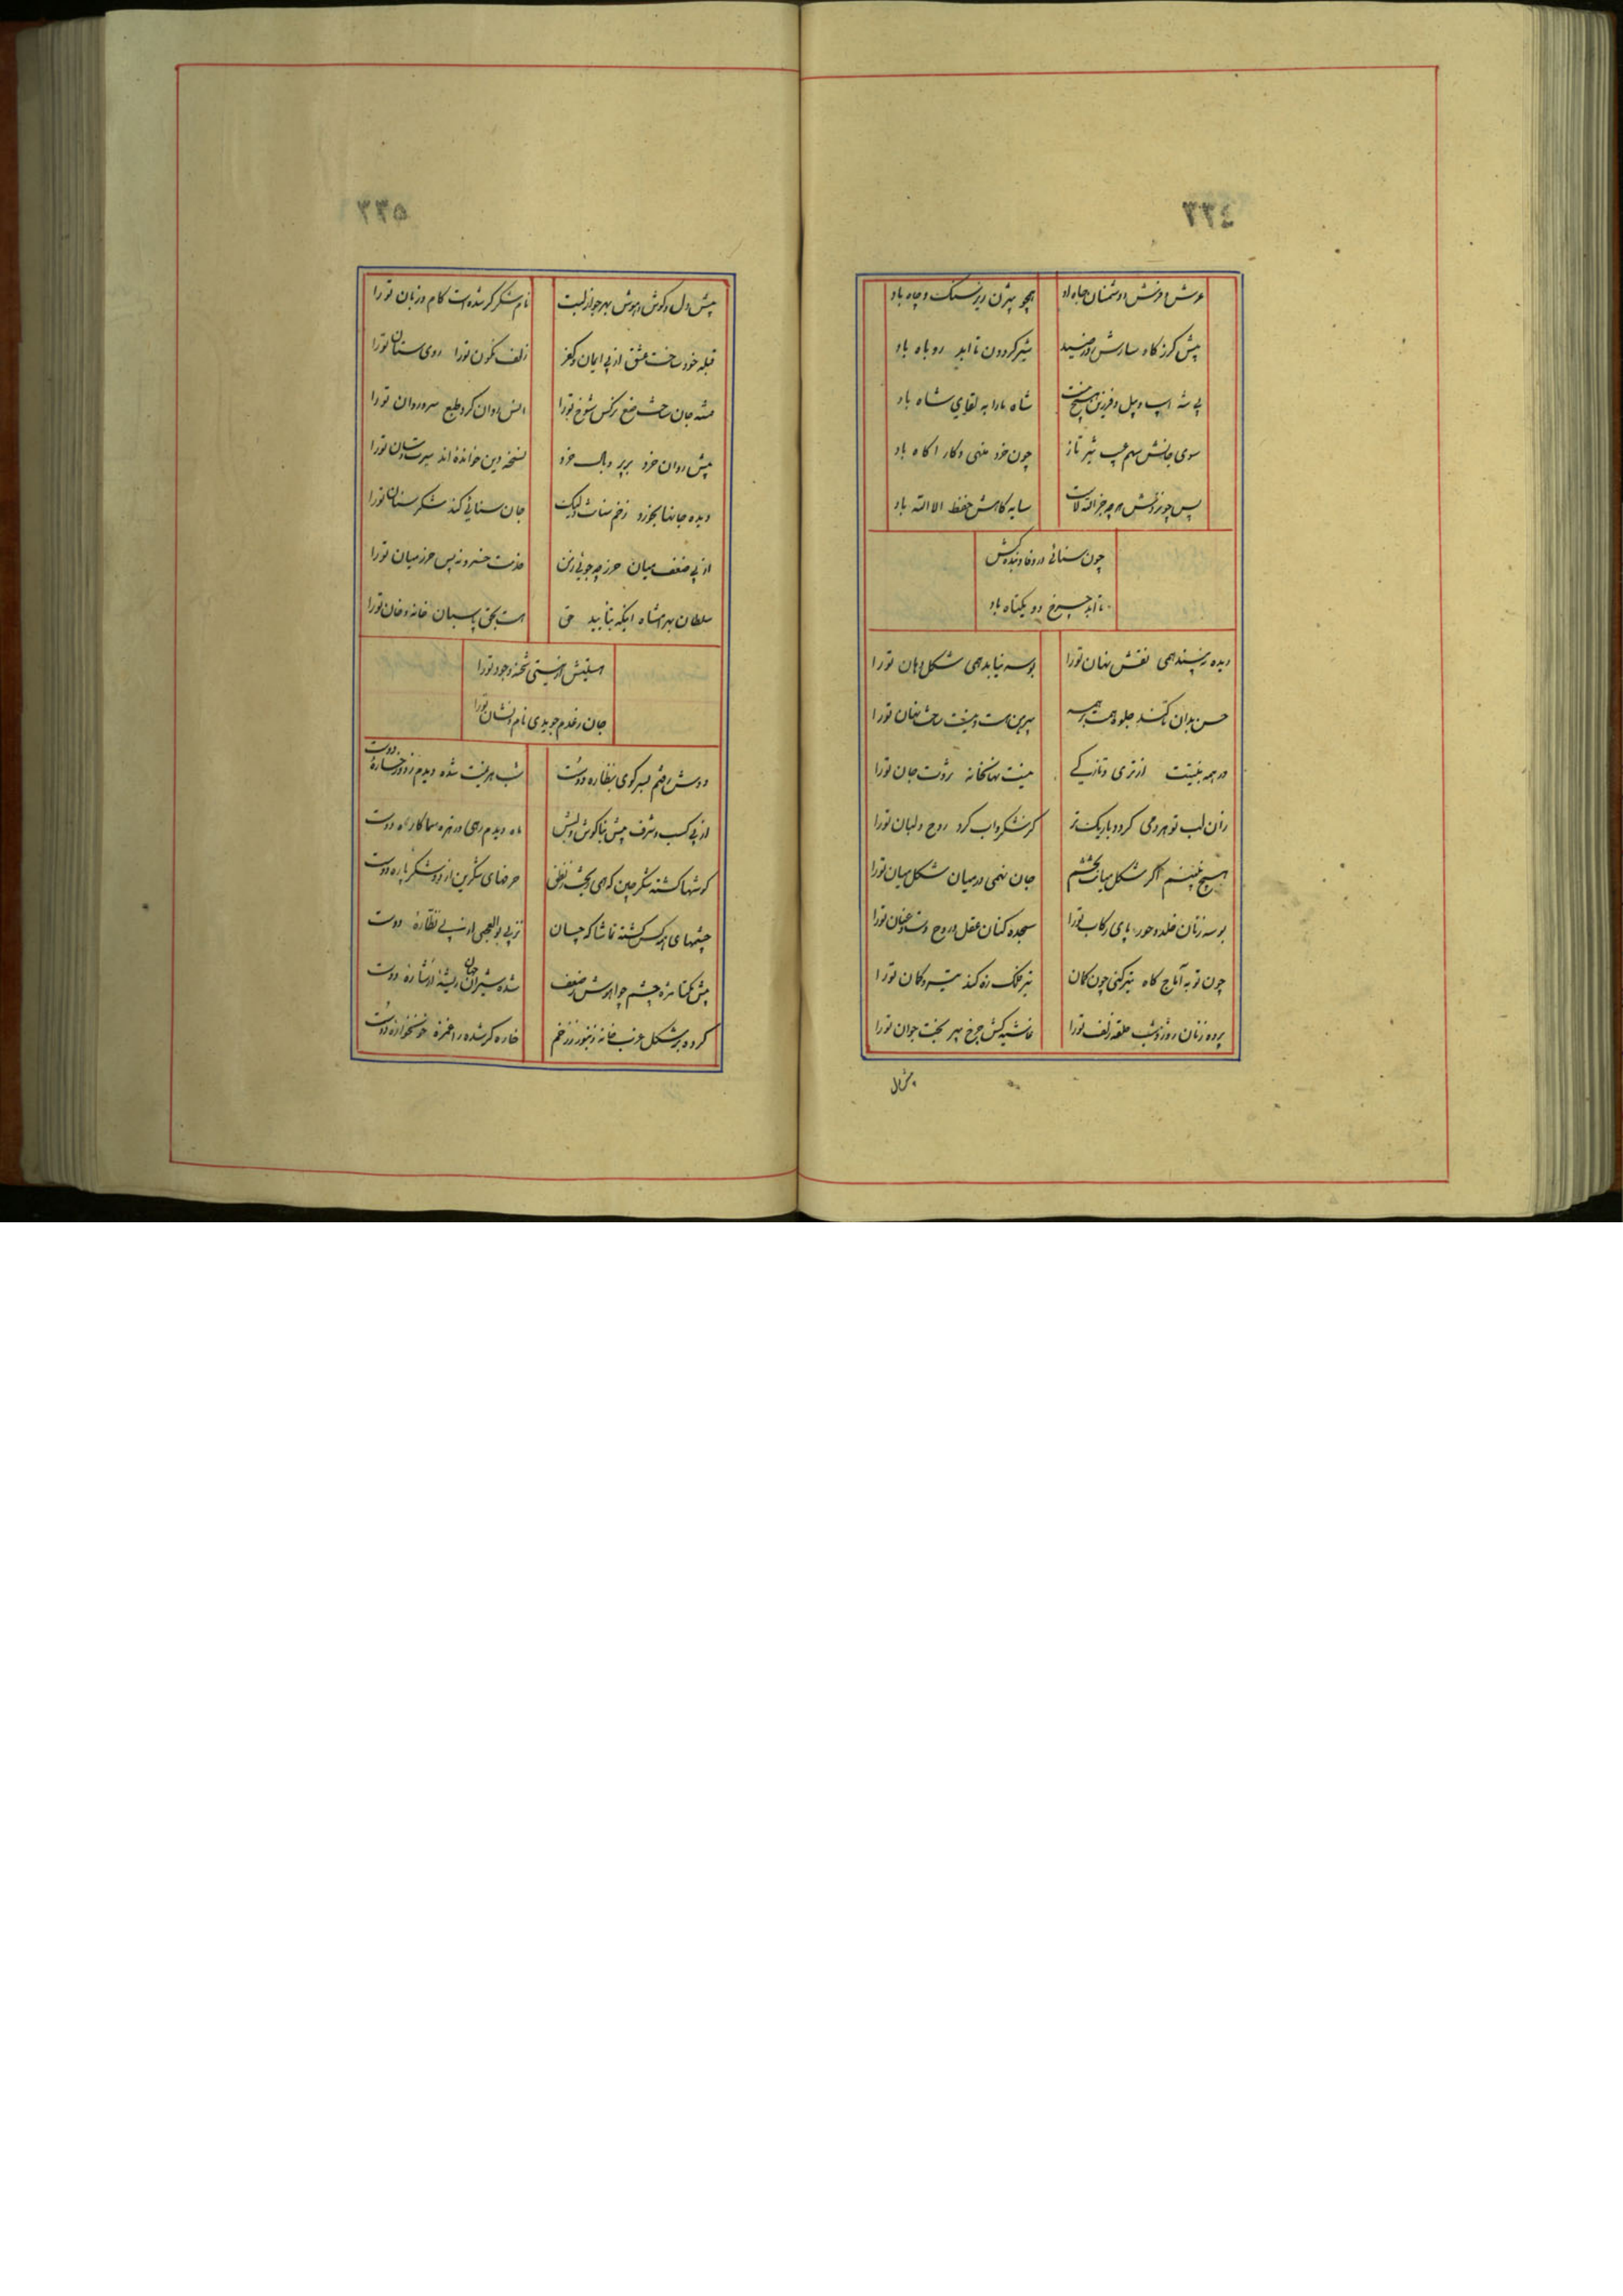 ۳۳٤
عرش و فرش و دشمنان جاه او همچو بیژن زیر سنگ و چاه باد
پیش گرز گاو سارش روز صید شیر گردون تا ابد روباه باد
پی شه اسب و پیل و فرزین هیچ نیست شاه ما را به لقای شاه باد
سوی جانش سهم غیب تیر تاز چون خرد منهی و کار آگاه باد
پس چو نزدش هر چه جز الله لاست سایه گاهش حفظ الا الله باد
چون سنائی در وفا و بندگیش
تا ابد چرخ دو یکتاه باد
دیده نبیند همی نقش نهان تورا بوسه نیابد همی شکل دهان تورا
حسن بدان تا کند جلوه همت بر همه پیرهن هست و نیست ساخت نهان تورا
در همه هستیت از تری و تازگی نیست نهانخانه ثروت جان تورا
زان لب تو هر دمی گردد باریک تر کز شکر و آب کرد روح لبان تورا
هیچ نبینم اگر شکل میانت بچشم جان نهمی در میان شکل میان تورا
بوسه زنان خلد و حور پای رکاب تورا سجده کنان عقل و روح دست و عنان تورا
چون تو به آماج گاه تیر کنی چون کمان تیر فلک زه کند تیر و کمان تورا
پرده زنان روز و شب حلقه زلف تورا غاشیه کش چرخ پیر بخت جوان تورا
پیش دل
۳۳۵
پیش دل و گوش و هوش بهر جواز لبت نام شکر گر شده است کام و زبان تورا
قبله خود ساخت عشق از پی ایمان و کفر زلف نگون تورا روی ستان تورا
فتنه جان ساخت صنع نرگس شوخ تورا انس روان کرد طبع سرو روان تورا
پیش روان خرد بر پر و بال خرد نسخه دین خوانده اند سیرت و سان تورا
دیده جانها بخورد زخم سنانت ولیک جان سنایی کند شکر سنان تورا
از پی ضعف میان حرز چه جوئی زمن خدمت خسرو نه بس حرز میان تورا
سلطان بهرامشاه آنکه بتأیید حق هست بحق پاسبان خانه و خان تورا
هستیش از نیستی شحنه وجود تورا
جان ز عدم جویدی نام و نشان تورا
دوش رفتم بسر کوی بنظاره دوست شب هزیمت شده دیدم ز دو رخساره دوست
از پی کسب شرف پیش بناگوش و لبش ماه دیدم رهی و زهره سما کاره دوست
گوشها گشته شکر چین که همی ریخت ز نطق حرفهای شکرین از دو شکر پاره دوست
چشمهای همه کس گشته تماشاگه جان نز پی بوالعجبی از پی نظاره دوست
پیش یکتا مژه چشم چو آهوش ز ضعف شده شیران جهان ریشه از شاره دوست
کرده بر شکل عزب خانه زنبور ز زخم خاره گر شده را غمزه خونخواره دوست